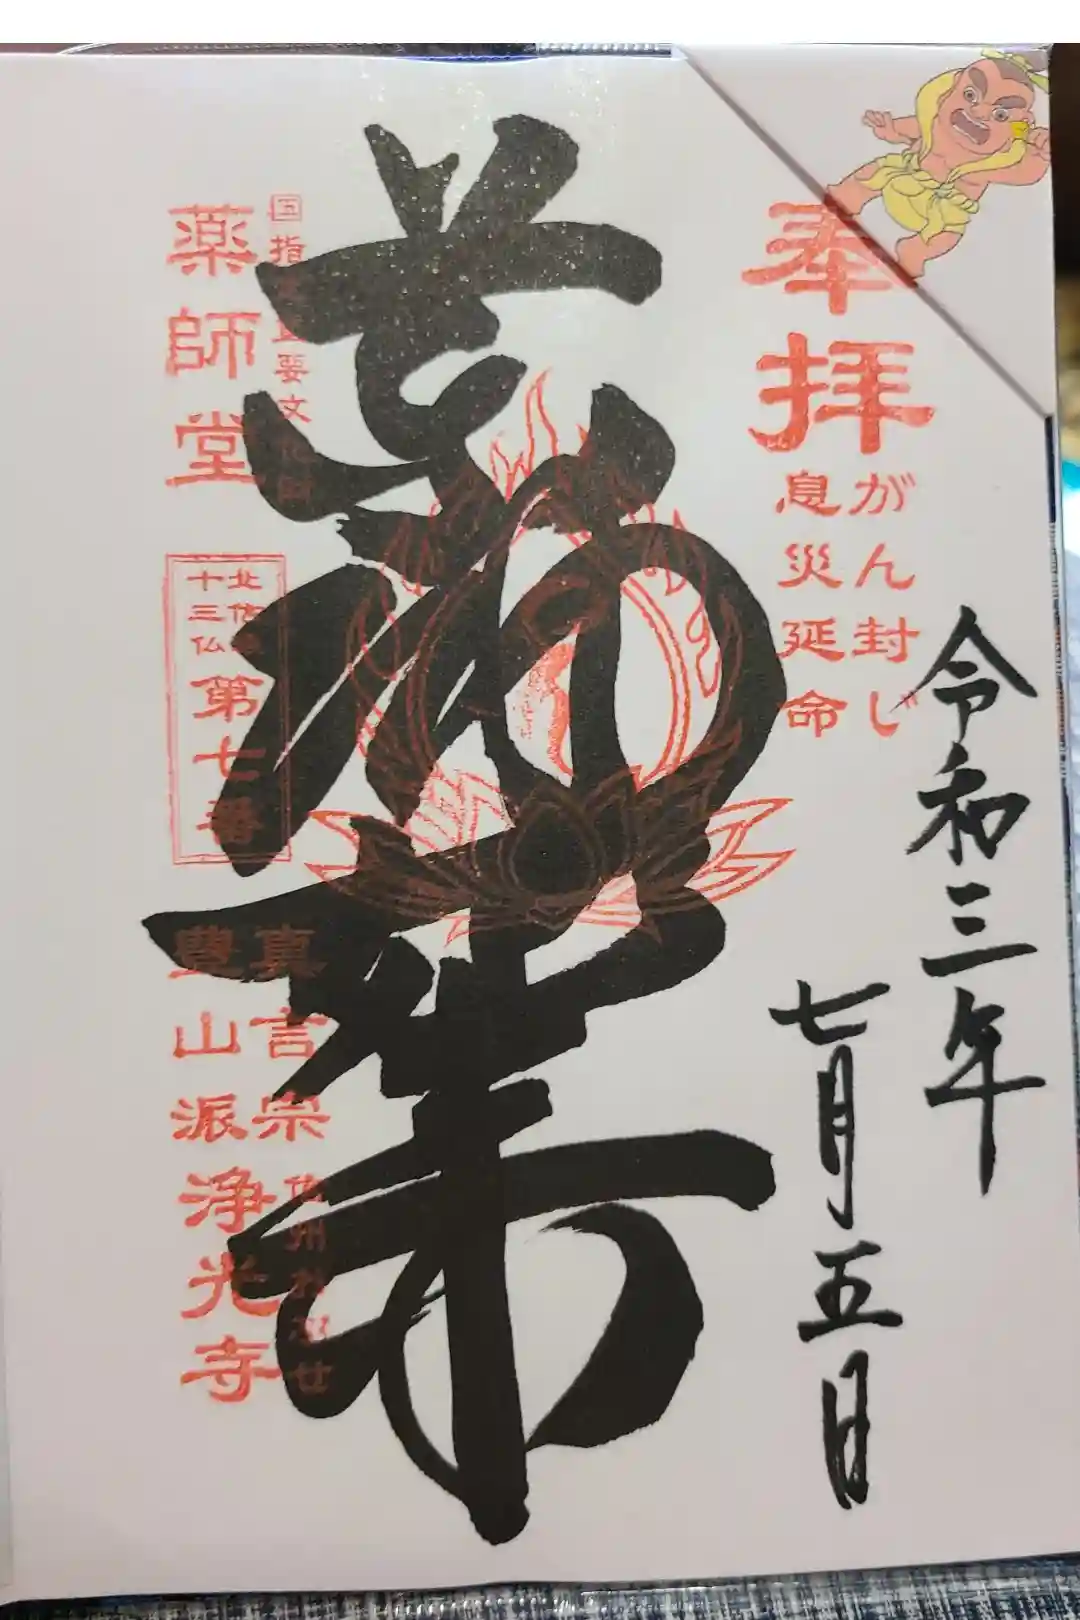 奉拝
がん封じ
息災延命
令和三年
七月五日
国指定重要文化財
薬師堂
北信濃
十三仏
第七番
真言宗
豊山派
浄光寺